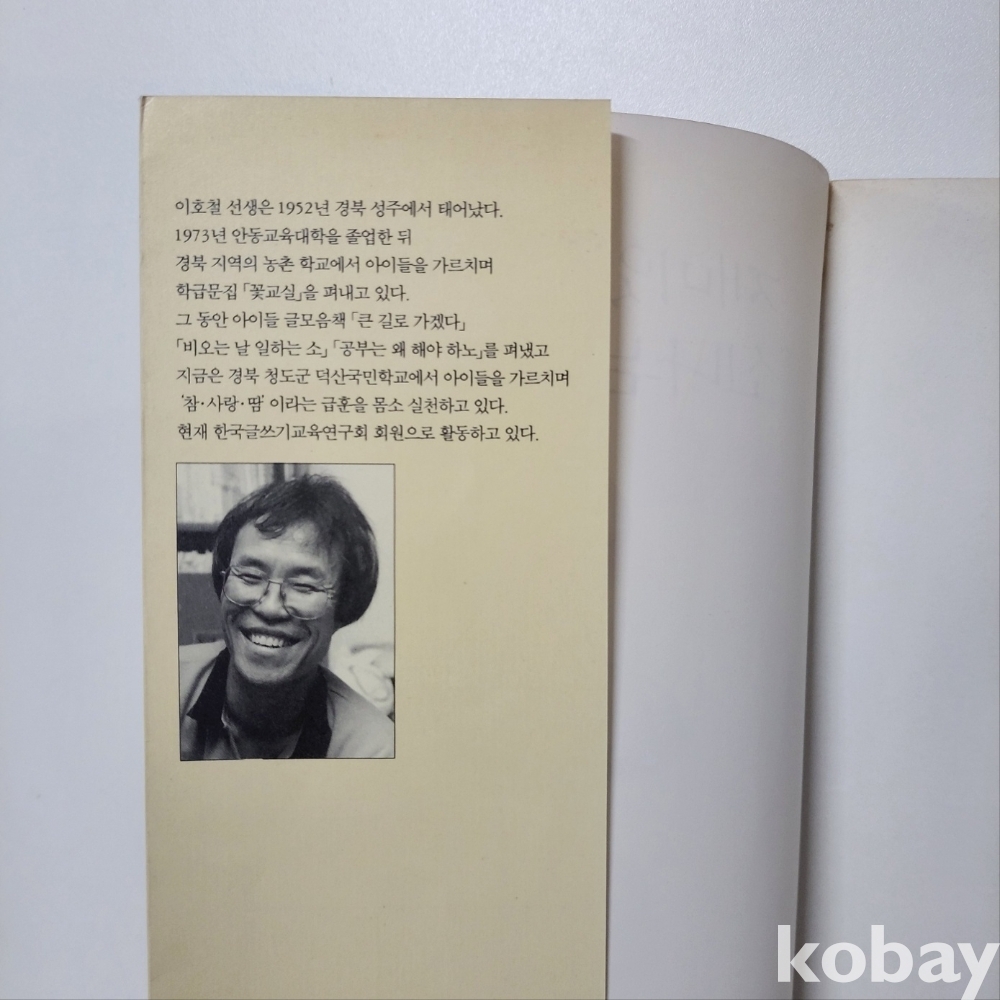 이호철 선생은 1952년 경북 성주에서 태어났다.
1973년 안동교육대학을 졸업한 뒤
경북 지역의 농촌 학교에서 아이들을 가르치며
학급문집 「꽃교실」을 펴내고 있다.
그 동안 아이들 글모음책 「큰 길로 가겠다」
「비오는 날 일하는 소」 「공부는 왜 해야 하노」를 펴냈고
지금은 경북 청도군 덕산국민학교에서 아이들을 가르치며
‘참·사랑·땀’ 이라는 급훈을 몸소 실천하고 있다.
현재 한국글쓰기교육연구회 회원으로 활동하고 있다.
kobay